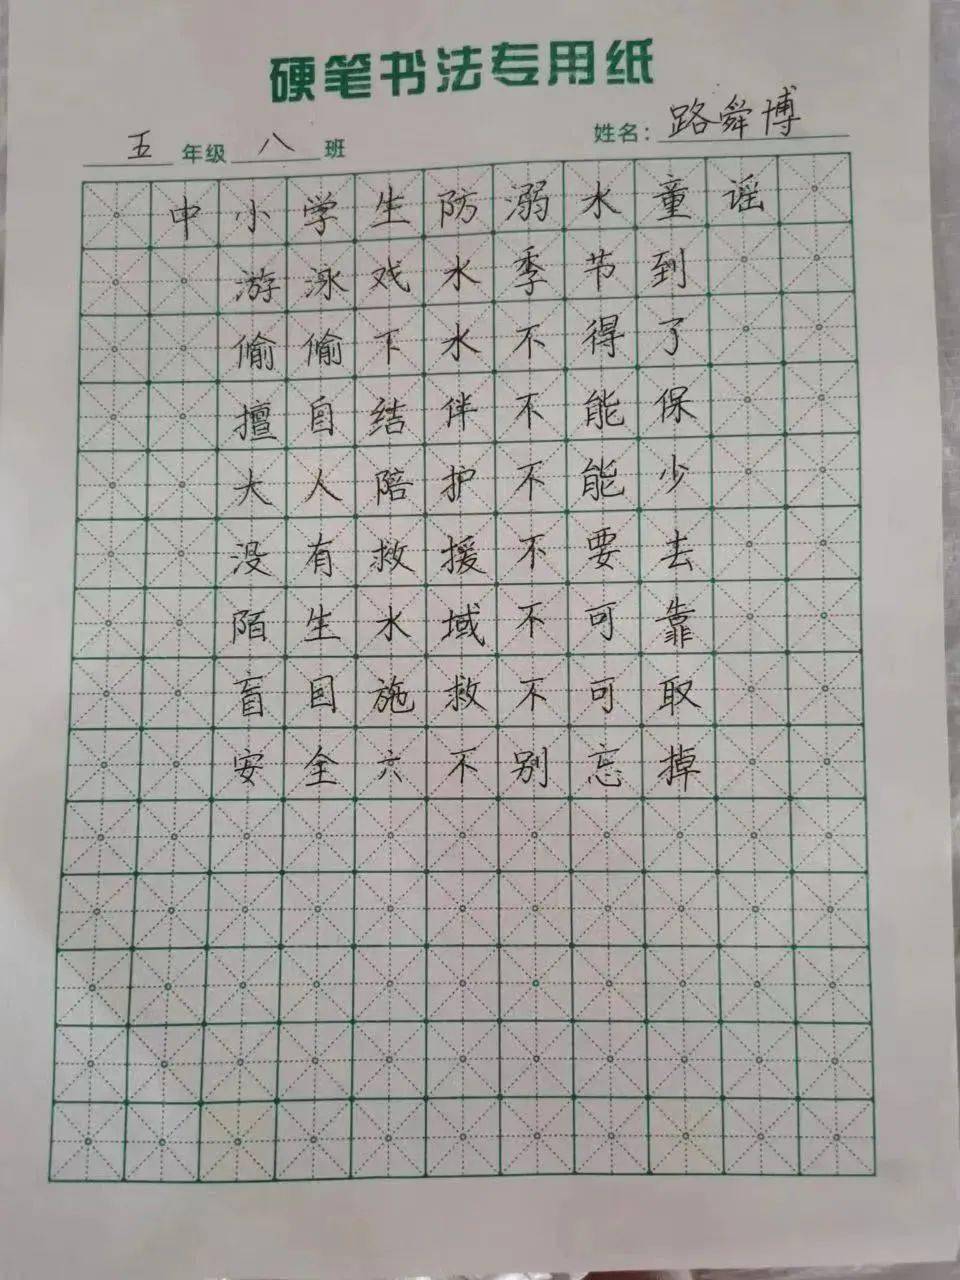 硬笔书法专用纸
五年级八班 姓名：路舜博
中小学生防溺水童谣
游泳戏水季节到
偷偷下水不得了
擅自结伴不能保
大人陪护不能少
没有救援不要去
陌生水域不可靠
盲目施救不可取
安全六不别忘掉